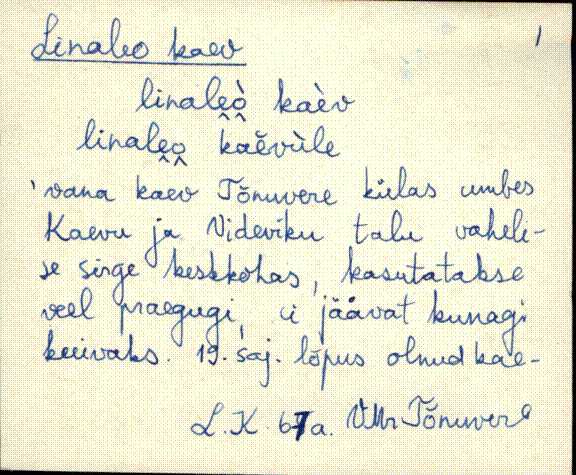 Linaleo kaev
1
linaleò kaèv
linaleo kaĕvùle
'vana kaev Tõnuvere külas umbes
Kaevu ja Videviku talu vaheli-
se sirge keskkohas, kasutatakse
veel praegugi, ei jäävat kunagi
kuivaks. 19. saj. lõpus olnud kae-
L.K. 67a. VMr Tõnuvere